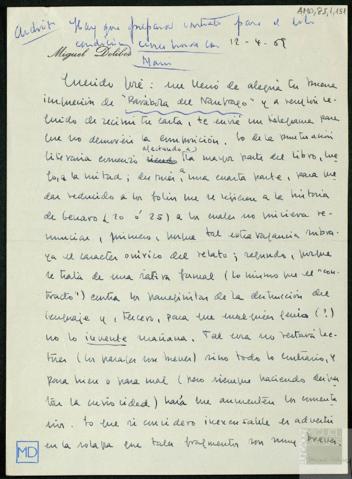 AMD,85,1,151
Andrés: Hay que preparar contrato para el libro
condiciones
12-4-69
Miguel Delibes
Mario
Querido Pepe: me llenó de alegría tu buena
impresión de "Parábola del Náufrago" y a renglón se-
guido de recibir tu carta, te envié un telegrama para
que no demoréis la composición. Lo de la puntuación
literaria comenzó afectando a la mayor parte del libro, lue-
go, a la mitad; después, a una cuarta parte, para que-
dar reducido a los folios que se refieren a la historia
de Genaro (20 ó 25) a los cuales no quisiera re-
nunciar, primero, porque tal extravagancia subra-
ya el carácter onírico del relato; segundo, porque
se trata de una sátira formal (lo mismo que el "con-
tracto") contra los panegiristas de la destrucción del
lenguaje y, tercero, para que cualquier genio (?)
no lo invente mañana. Tal cosa no restará lec-
tores (los pasajes son breves) sino todo lo contrario, y
para bien o para mal (pero siempre haciendo desper-
tar la curiosidad) hará que aumenten los comenta-
rios. Lo que sí considero inexcusable es advertir
en la solapa que tales fragmentos son muy breves.
MD